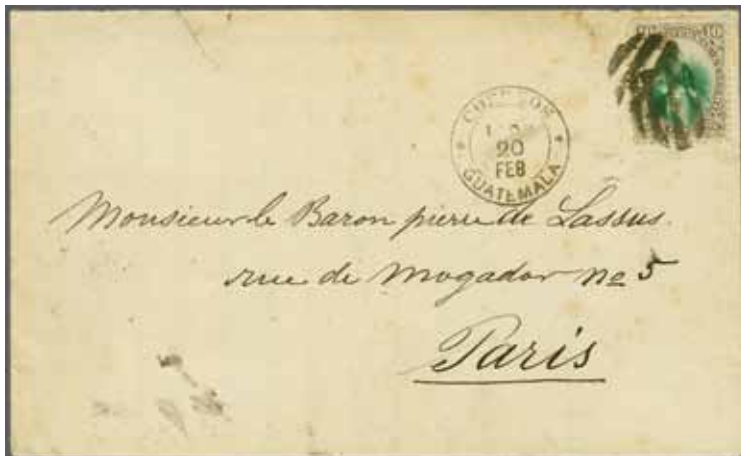 CORREOS
20
FEB
GUATEMALA
Monsieur le Baron pierre de Lassus.
rue de Mogador no 5
Paris